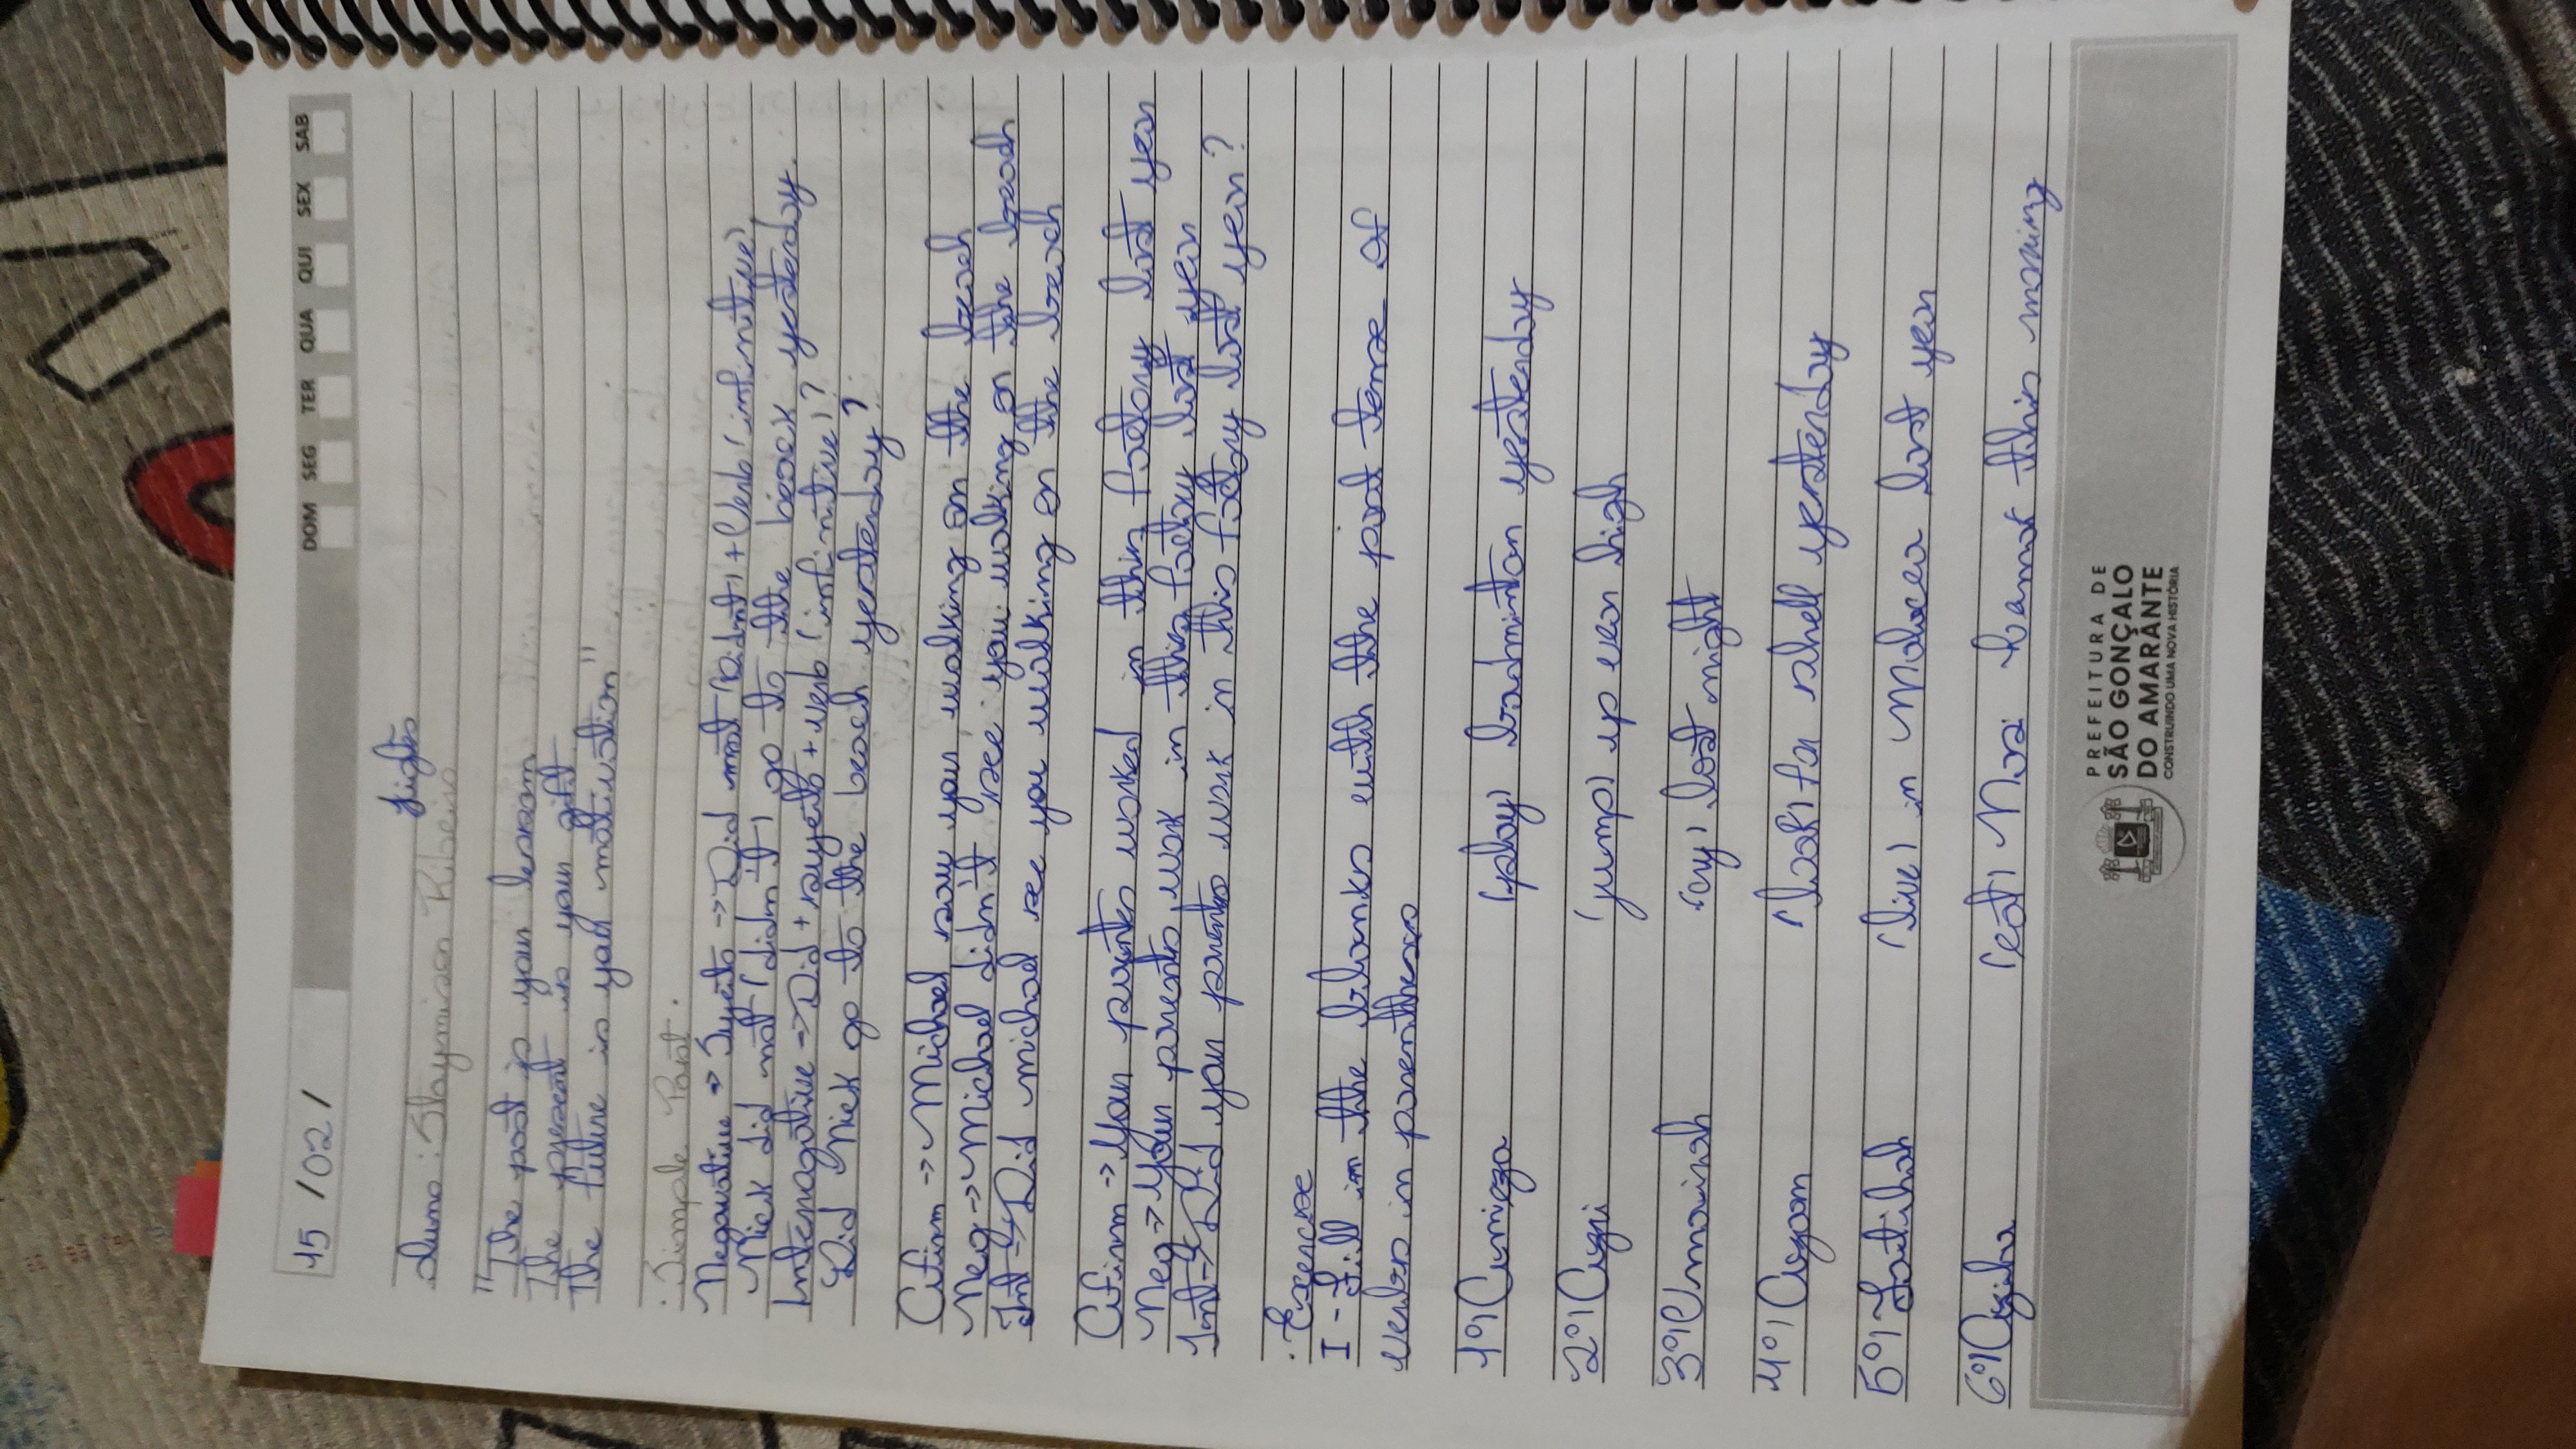 15 / 02 /
DOM SEG TER QUA QUI SEX SAB
Lights
"The past is your lesson
The present is your gift
The future is your motivation"
Simple Past.
Negative => Sujeito -> Did not (didn't) + Verb (infinitive)
Nick did not (didn't) go to the beack yesterday.
Interragative -> Did + sujeito + verb (infinitive)?
Did Nick go to the beach yesterday?
Afirm -> Michael saw you walking on the beach
Neg -> Michael didn't see you walking on the beach
Int -> Did michael see you walking on the beach
Afirm -> Your parents worked in this factory last year
Neg -> Your parents work in this factory last year
Int -> Did your parents work in this factory last year?
. Exercise
I - Fill in the blanks with the past tense of
verbs in parentheses
1º) Amieza (play) badminton yesterday
2º) Ayni (jump) up even high
3º) Umairah (cry) last night
4º) Asyom (look) for shell yesterday
5º) Fatihah (live) in Malacca last year
6º) Asiha (eat) Nasi this morning
PREFEITURA DE
SÃO GONÇALO
DO AMARANTE
CONSTRUINDO UMA NOVA HISTÓRIA